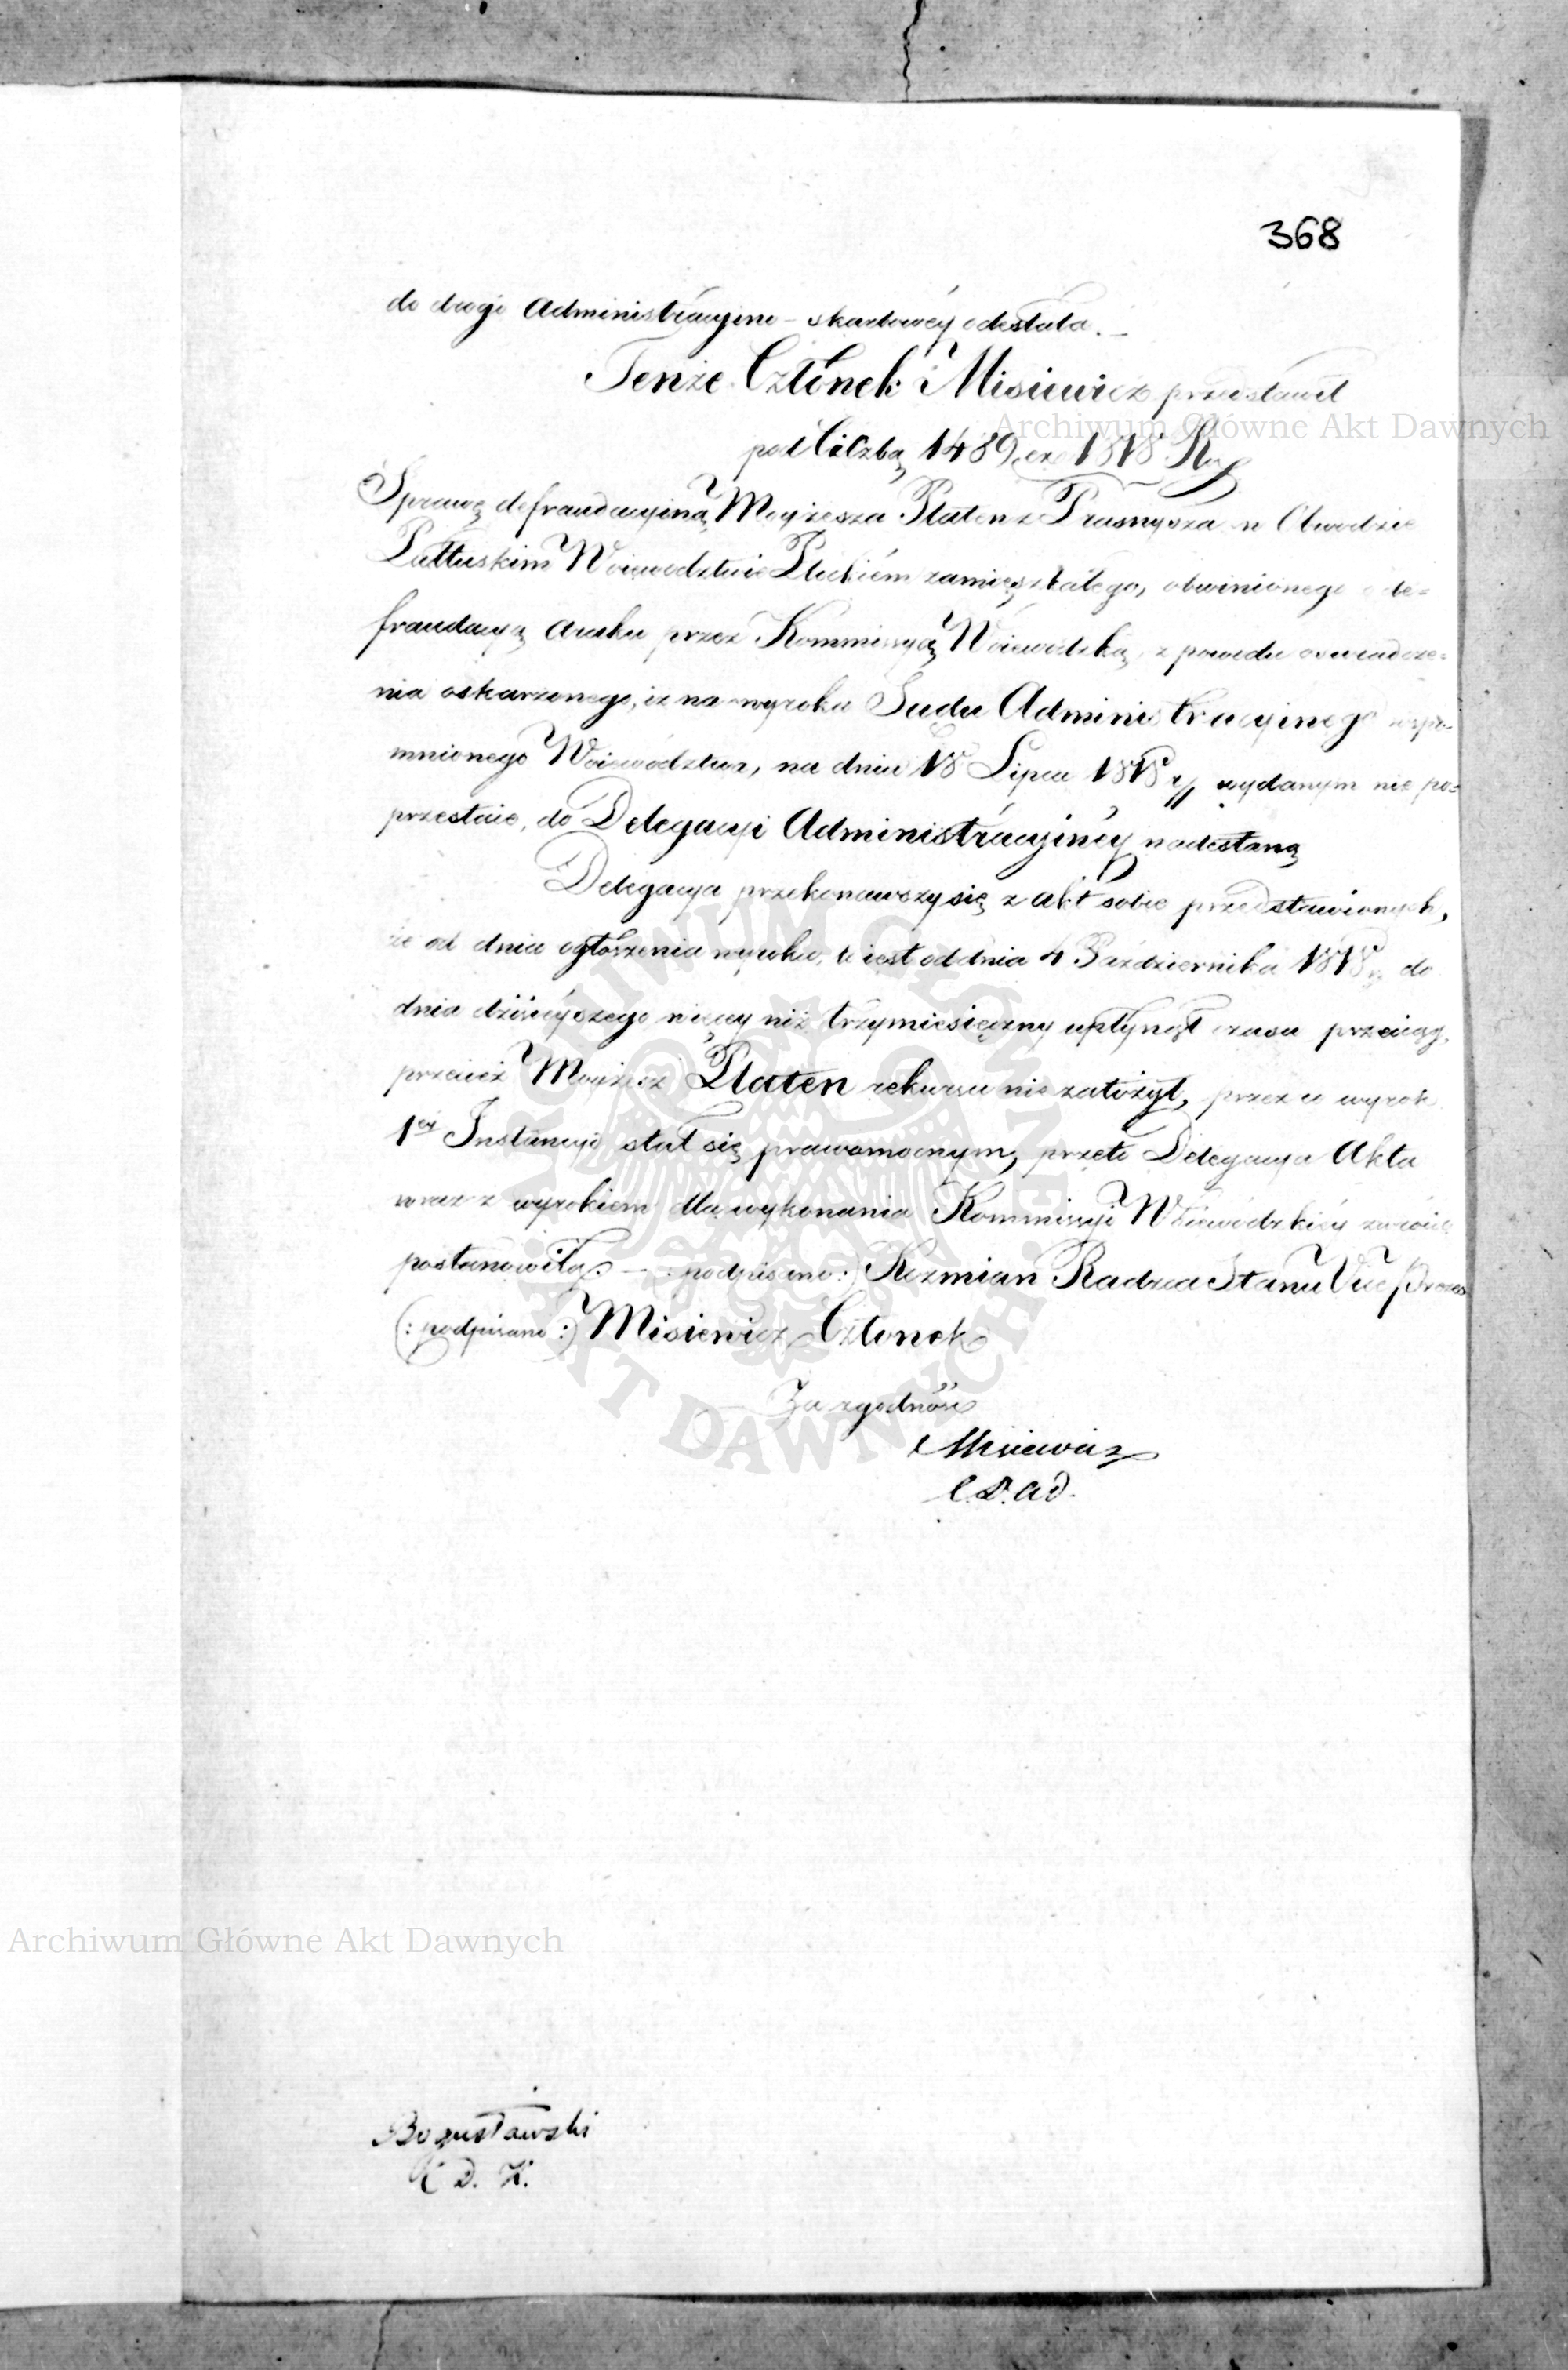 368
do drogi Administracyino - skarbowéy odesłała. -
Tenże Członek Misiewicz przedstawił
pod Liczbą 1489 ex 1818 Rz
Sprawę defraudacyiną Moyżesza Platen z Prasnysza w Obwodzie
Pułtuskim Woiewodztwie Płockiém zamięszkałego, obwinionego o de=
fraudacyą araku przez Kommissyą Woiewódzką, z powodu oswiadcze=
nia oskarzonego, iż na wyroku Sądu Administracyinego wspo-
mnionego Woiewództwa, na dniu 18 Lipca 1818 r wydanym nie po=
przestaie, do Delegacyi Administracyinéy nadesłaną
Delegacya przekonawszy się z akt sobie przedstawionych,
że od dnia ogłoszenia wyroku, to iest od dnia 4 Października 1818 r do
dnia dzisieyszego więcey niż trzymiesięczny upłynął czasu przeciąg,
przecież Moyżesz Platen rekursu nie założył, przez co wyrok
1éy Instancyi stał się prawomocnym, przeto Delegacya Akta
wraz z wyrokiem dla wykonania Kommissyi Woiewódzkiéy zwrócić
postanowiła. - (: podpisano :) Kozmian Radzca Stanu Vice Prezes
(: podpisano :) Misiewicz Członek
Za zgodność
Misiewicz
C. D. Ad.
Bogusławski
K. D. K.
Archiwum Główne Akt Dawnych
Archiwum Główne Akt Dawnych
ARCHIWUM GŁÓWNE
AKT DAWNYCH